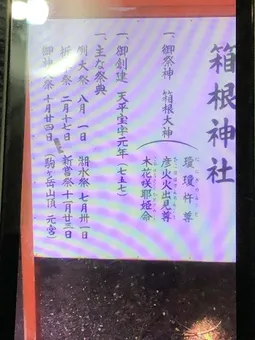 箱根神社
瓊瓊杵尊
一、御祭神 箱根大神 彦火火出見尊
木花咲耶姫命
一、御創建 天平宝字元年（七五七）
一、主な祭典
例大祭 八月一日 湖水祭 七月卅一日
祭 二月十七日 新嘗祭 十一月廿三日
御神火祭 十月廿四日 駒ヶ岳山頂 元宮